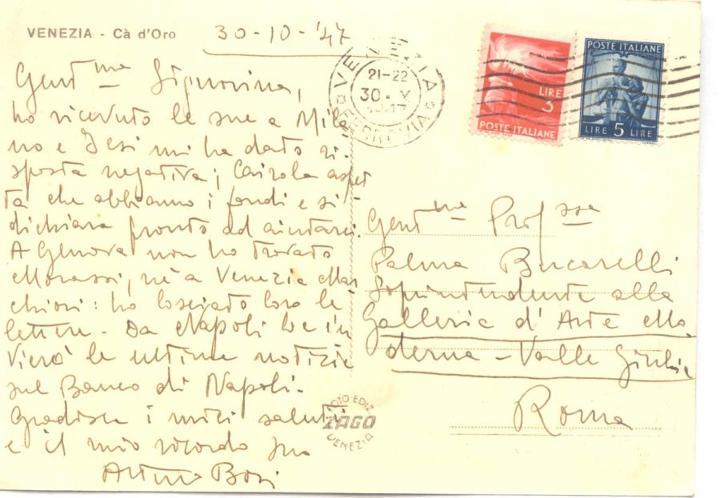 VENEZIA - Cà d'Oro
30-10-'47
Gent.ma Signorina,
ho ricevuto le sue a Mila
no e Jesi mi ha dato ri-
sposta negativa; Cairola aspet
ta che abbiamo i fondi e si
dichiara pronto ad aiutarci.
A Genova non ho trovato
Morassi, nè a Venezia Mar
chiori: ho lasciato loro le
lettere. Da Napoli le in
vierò le ultime notizie
sul Banco di Napoli.
Gradisca i miei saluti
e il mio ricordo suo
VENEZIA
21-22
30 X
FERROVIA
LIRE
3
POSTE ITALIANE
POSTE ITALIANE
LIRE 5 LIRE
Gent.ma Prof.ssa
Palma Bucarelli
Sopintendente alla
Galleria d'Arte Mo
derna - Valle Giulia
Roma
FOTO EDIZ
ZAGO
VENEZIA